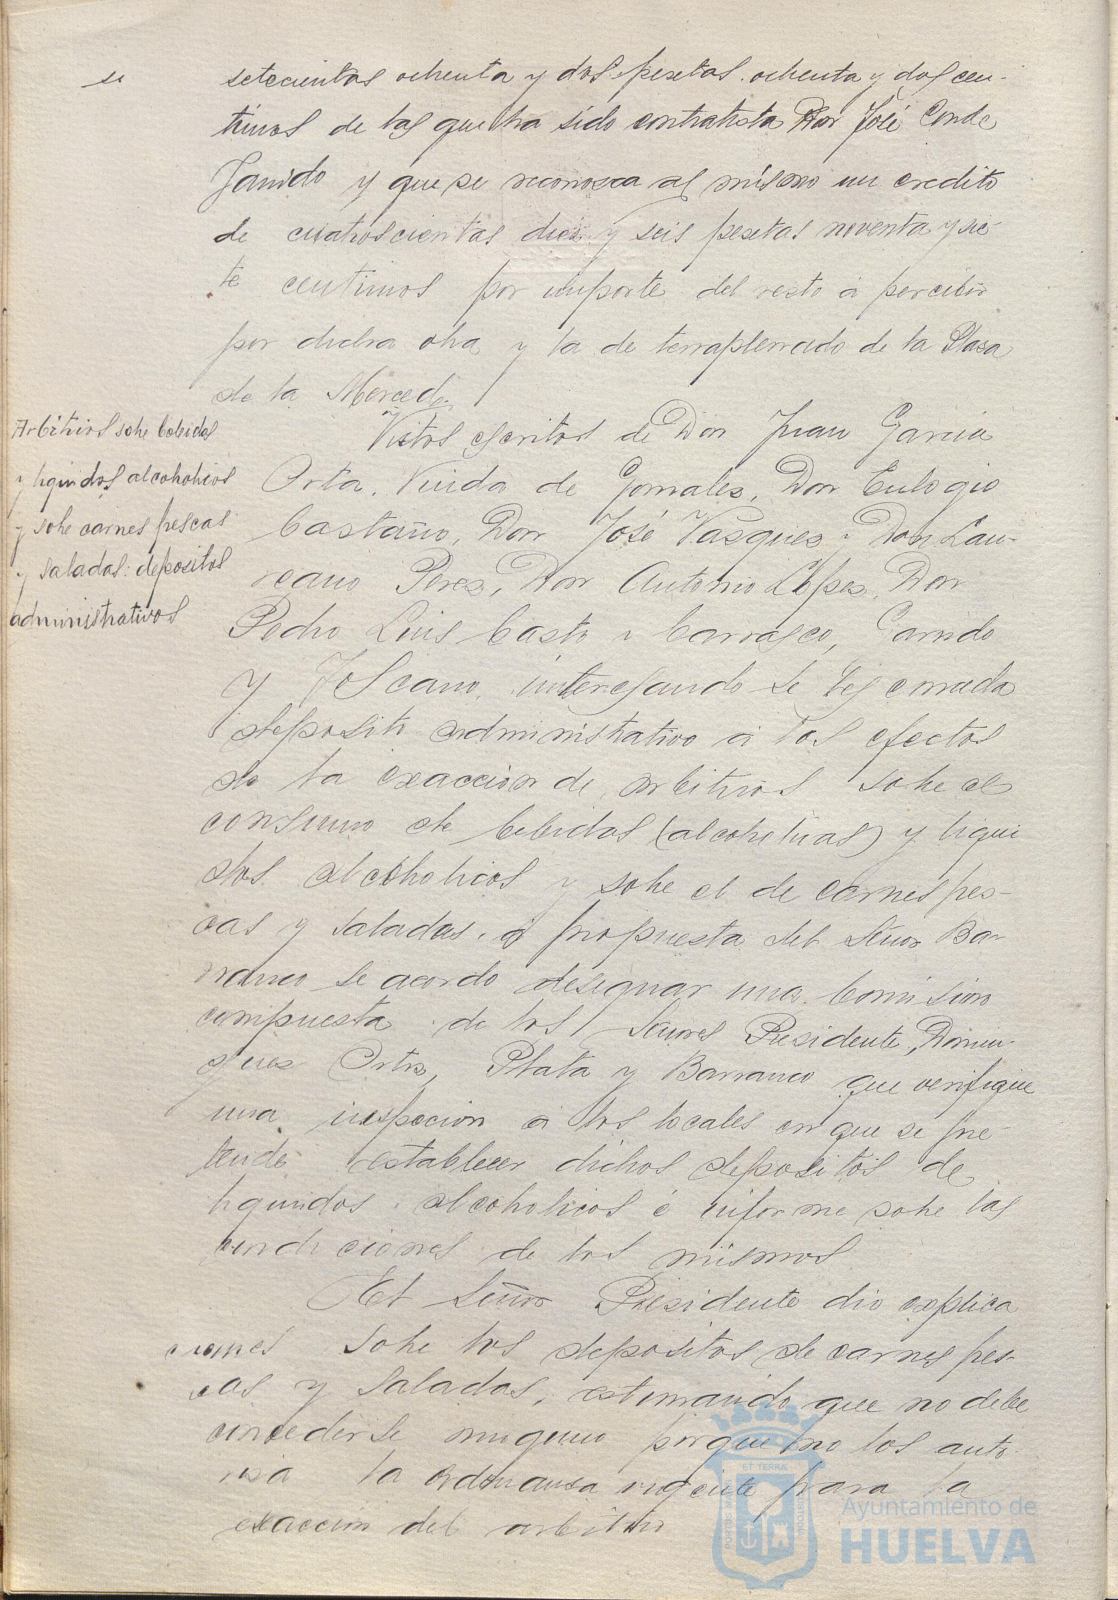 se
setecientas ochenta y dos pesetas ochenta y dos cen-
timos de las que ha sido contratista Don José Conde
Garrido y que se reconosca al mismo un credito
de cuatroscientas dies y seis pesetas noventa y sie-
te centimos por importe del resto á percibir
por dicha obra y la de terraplenado de la Plasa
de la Merced.
Arbitrios sobre bebidas
y liquidos alcoholicos
y sobre carnes fescas
y saladas: depositos
administrativos
Vistos escritos de Don Juan Garcia
Orta, Viuda de Gonsales, Don Eulogio
Castaño, Don José Vasques, Don Lau-
reano Peres, Don Antonio Lopes, Don
Pedro Luis Casto y Carrasco, Garrido
y Toscano, interesando se les conceda
deposito administrativo á los efectos
de la exaccion de arbitrios sobre el
consumo de bebidas (alcoholicas) y liqui
dos alcoholicos y sobre el de carnes fes-
cas y saladas, á propuesta del Señor Ba-
rranco se acordo designar una Comision
compuesta de los Señores Presidente, Domin-
gues Ortis, Plata y Barranco que verifique
una inspecion á los locales en que se pre-
tende establecer dichos depositos de
liquidos alcoholicos é informe sobre las
condiciones de los mismos
El Señor Presidente dio explica
ciones sobre los depositos de carnes fes-
cas y saladas, estimando que no debe
concederse ninguno porque no los auto-
risa la ordenansa vigente para la
exaccion del arbitrio
Ayuntamiento de
HUELVA